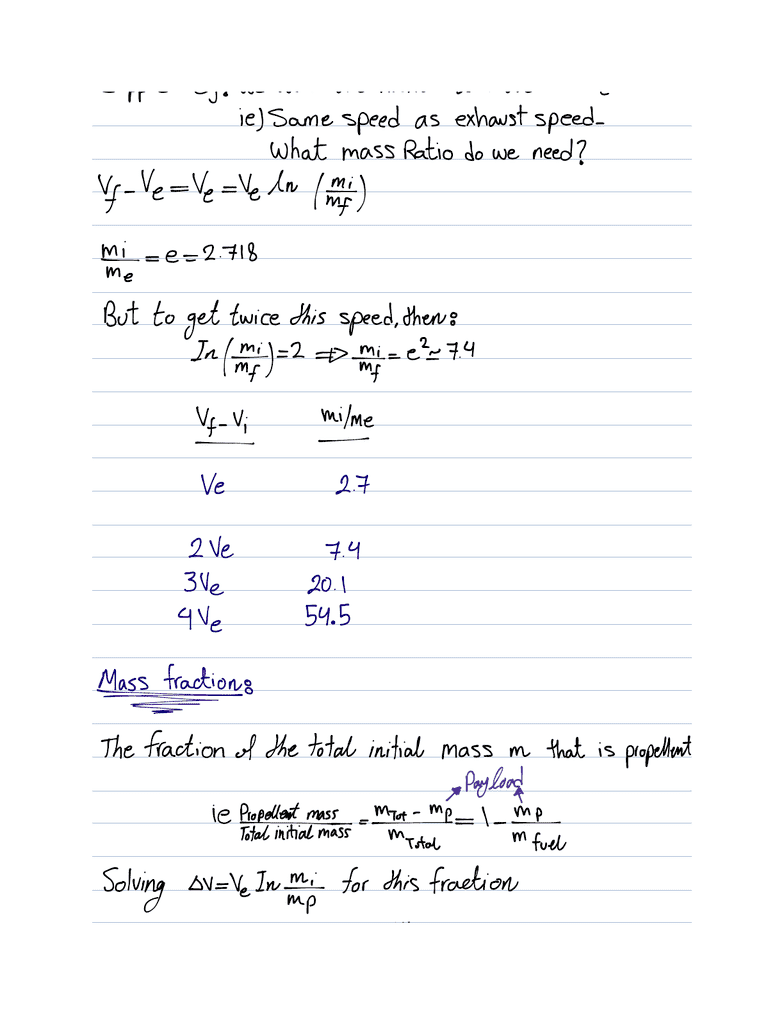 ie) Same speed as exhaust speed-
What mass Ratio do we need?
Vf - Ve = Ve = Ve ln (mi/mf)
mi/me = e = 2.718
But to get twice this speed, then:
In (mi/mf) = 2 => mi/mf = e² ≃ 7.4
Vf - Vi mi/me
Ve 2.7
2 Ve 7.4
3Ve 20.1
4Ve 54.5
Mass fraction:
The fraction of the total initial mass m that is propellent
Payload
ie Propellent mass/Total initial mass = mTot - mp/mTotal = 1 - mp/m fuel
Solving ΔV = Ve In mi/mp for this fraction